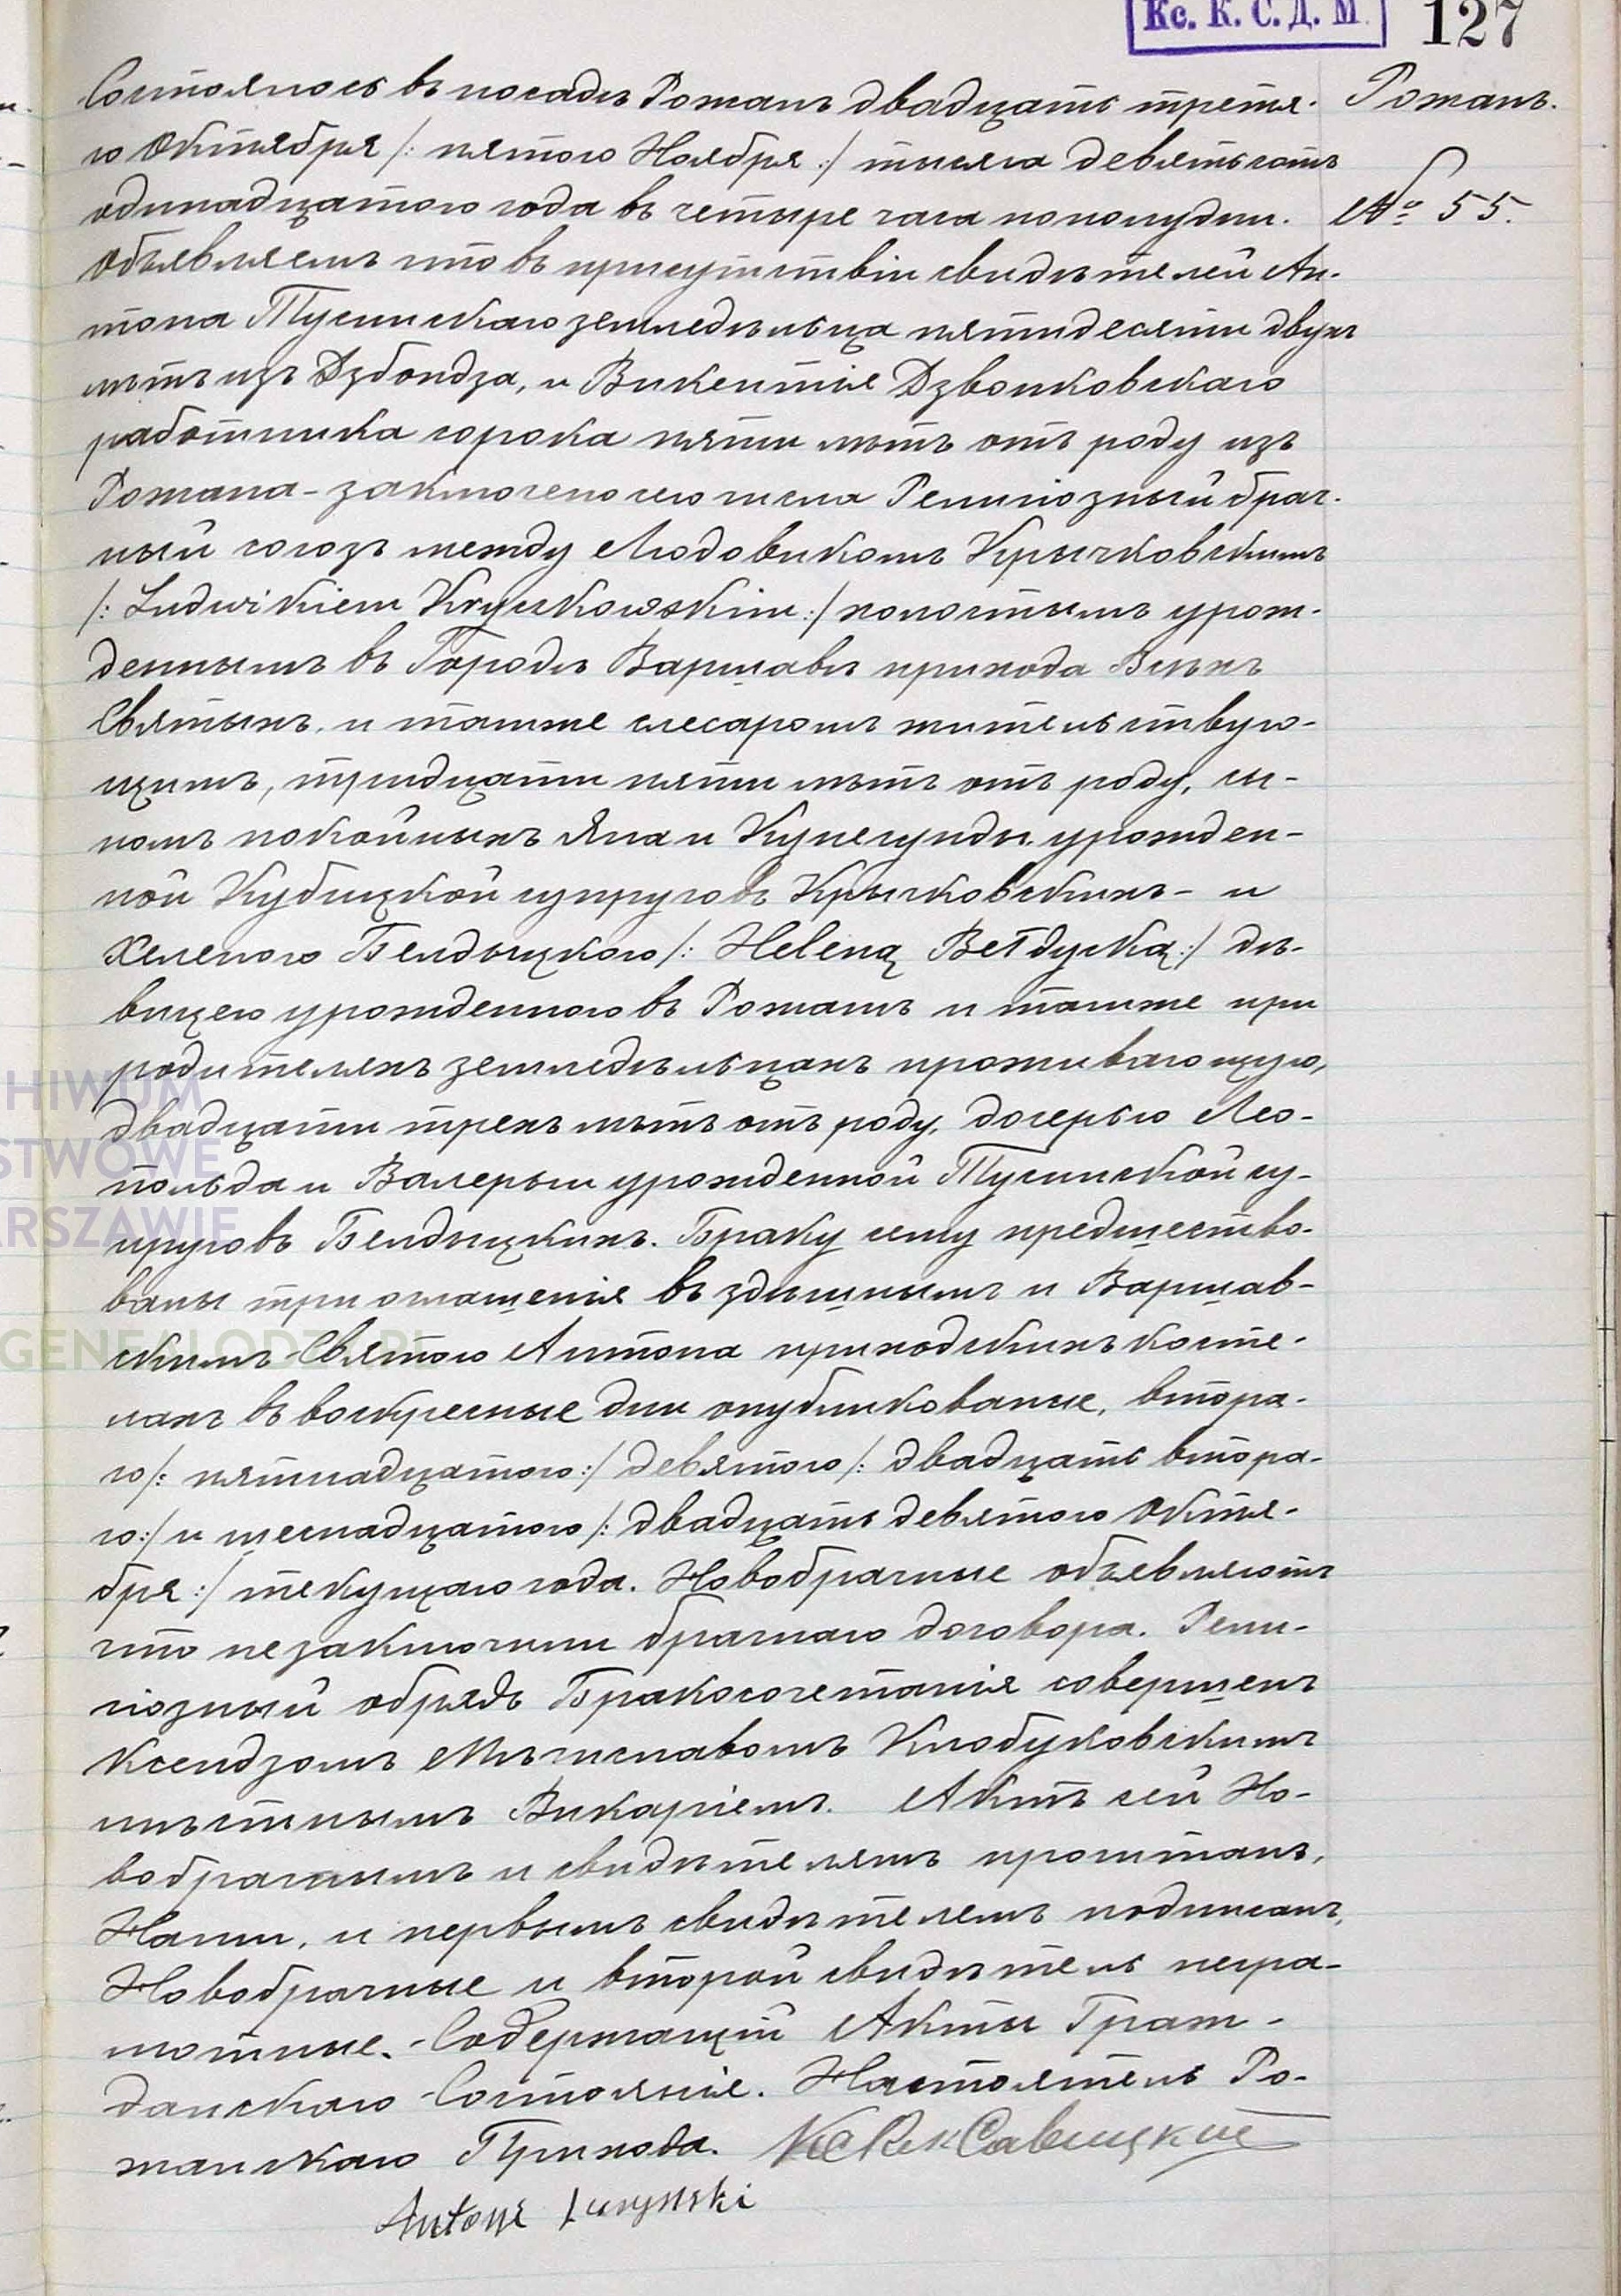 Кс. К. С. Д. М.
127
Рожанъ.
№ 55.
Состоялось въ посадѣ Рожанъ двадцать третя-
го Октября /: пятого Ноября :/ тысяча девятьсотъ
одинадцатого года въ четыре часа пополудни.
Объявляемъ что въ присутствіи свидѣтелей Ан-
тона Тусинскаго земледѣльца пятидесяти двухъ
лѣтъ изъ Дзбондза, и Викентія Дзвонковскаго
работника сорока пяти лѣтъ отъ роду изъ
Рожана - заключено сего числа Религіозный брач-
ный союзъ между Людовикомъ Крычковскимъ
/: Ludwikiem Kryczkowskim :/ холостымъ урож-
деннымъ въ Городѣ Варшавѣ прихода Всѣхъ
Святыхъ, и тамже слесаромъ жительствую-
щимъ, тридцати пяти лѣтъ отъ роду, сы-
номъ покойныхъ Яна и Кунегунды урожден-
ной Кубицкой супруговъ Крычковскихъ - и
Хеленою Белдыцкою /: Heleną Bełdycką :/ дѣ-
вицею урожденною въ Рожанѣ и тамже при
родителяхъ земледѣльцахъ проживающую,
двадцати трехъ лѣтъ отъ роду, дочерью Лео-
польда и Валерыи урожденной Тусинской су-
пруговъ Белдыцкихъ. Браку сему предшество-
вапы три оглашенія въ здѣшнымъ и Варшав-
скимъ Святого Антона приходскихъ косте-
лахъ въ воскресные дни опубликованые, втора-
го /: пятнадцатого :/ девятого /: двадцать втора-
го :/ и шеснадцатого /: двадцать девятого Октя-
бря :/ текущаго года. Новобрачные объявляютъ
что незаключили брачнаго договора. Рели-
гіозный обрядъ Бракосочетанія совершенъ
Ксендзомъ Мѣчиславомъ Клобуковскимъ
мѣстнымъ Викаріемъ. Актъ сей Но-
вобрачнымъ и свидѣтелямъ прочитанъ,
Нами, и первымъ свидѣтелемъ подписанъ,
Новобрачные и второй свидѣтель негра-
мотные. Содержащій Акты Граж-
данскаго Состоянія. Настоятель Ро-
жанскаго Прихода. Савицкій
Antoni Tusiński